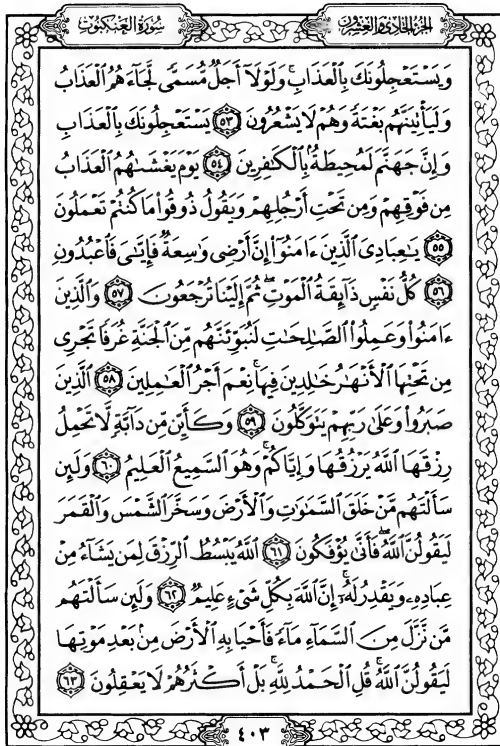 الجزء الحادي والعشرون
سورة العنكبوت
وَيَسْتَعْجِلُونَكَ بِالْعَذَابِ ۚ وَلَوْلَا أَجَلٌ مُّسَمًّى لَّجَاءَهُمُ الْعَذَابُ
وَلَيَأْتِيَنَّهُم بَغْتَةً وَهُمْ لَا يَشْعُرُونَ ﴿٥٣﴾ يَسْتَعْجِلُونَكَ بِالْعَذَابِ
وَإِنَّ جَهَنَّمَ لَمُحِيطَةٌ بِالْكَٰفِرِينَ ﴿٥٤﴾ يَوْمَ يَغْشَىٰهُمُ الْعَذَابُ
مِن فَوْقِهِمْ وَمِن تَحْتِ أَرْجُلِهِمْ وَيَقُولُ ذُوقُوا۟ مَا كُنتُمْ تَعْمَلُونَ
﴿٥٥﴾ يَٰعِبَادِىَ الَّذِينَ ءَامَنُوٓا۟ إِنَّ أَرْضِى وَٰسِعَةٌ فَإِيَّٰىَ فَاعْبُدُونِ
﴿٥٦﴾ كُلُّ نَفْسٍ ذَآئِقَةُ الْمَوْتِ ۖ ثُمَّ إِلَيْنَا تُرْجَعُونَ ﴿٥٧﴾ وَالَّذِينَ
ءَامَنُوا۟ وَعَمِلُوا۟ الصَّٰلِحَٰتِ لَنُبَوِّئَنَّهُم مِّنَ الْجَنَّةِ غُرَفًا تَجْرِى
مِن تَحْتِهَا الْأَنْهَٰرُ خَٰلِدِينَ فِيهَا ۚ نِعْمَ أَجْرُ الْعَٰمِلِينَ ﴿٥٨﴾ الَّذِينَ
صَبَرُوا۟ وَعَلَىٰ رَبِّهِمْ يَتَوَكَّلُونَ ﴿٥٩﴾ وَكَأَيِّن مِّن دَآبَّةٍ لَّا تَحْمِلُ
رِزْقَهَا اللَّهُ يَرْزُقُهَا وَإِيَّاكُمْ ۚ وَهُوَ السَّمِيعُ الْعَلِيمُ ﴿٦٠﴾ وَلَئِن
سَأَلْتَهُم مَّنْ خَلَقَ السَّمَٰوَٰتِ وَالْأَرْضَ وَسَخَّرَ الشَّمْسَ وَالْقَمَرَ
لَيَقُولُنَّ اللَّهُ ۖ فَأَنَّىٰ يُؤْفَكُونَ ﴿٦١﴾ اللَّهُ يَبْسُطُ الرِّزْقَ لِمَن يَشَآءُ مِنْ
عِبَادِهِۦ وَيَقْدِرُ لَهُۥٓ ۚ إِنَّ اللَّهَ بِكُلِّ شَىْءٍ عَلِيمٌ ﴿٦٢﴾ وَلَئِن سَأَلْتَهُم
مَّن نَّزَّلَ مِنَ السَّمَآءِ مَآءً فَأَحْيَا بِهِ الْأَرْضَ مِنۢ بَعْدِ مَوْتِهَا
لَيَقُولُنَّ اللَّهُ ۚ قُلِ الْحَمْدُ لِلَّهِ ۚ بَلْ أَكْثَرُهُمْ لَا يَعْقِلُونَ ﴿٦٣﴾
٤٠٣